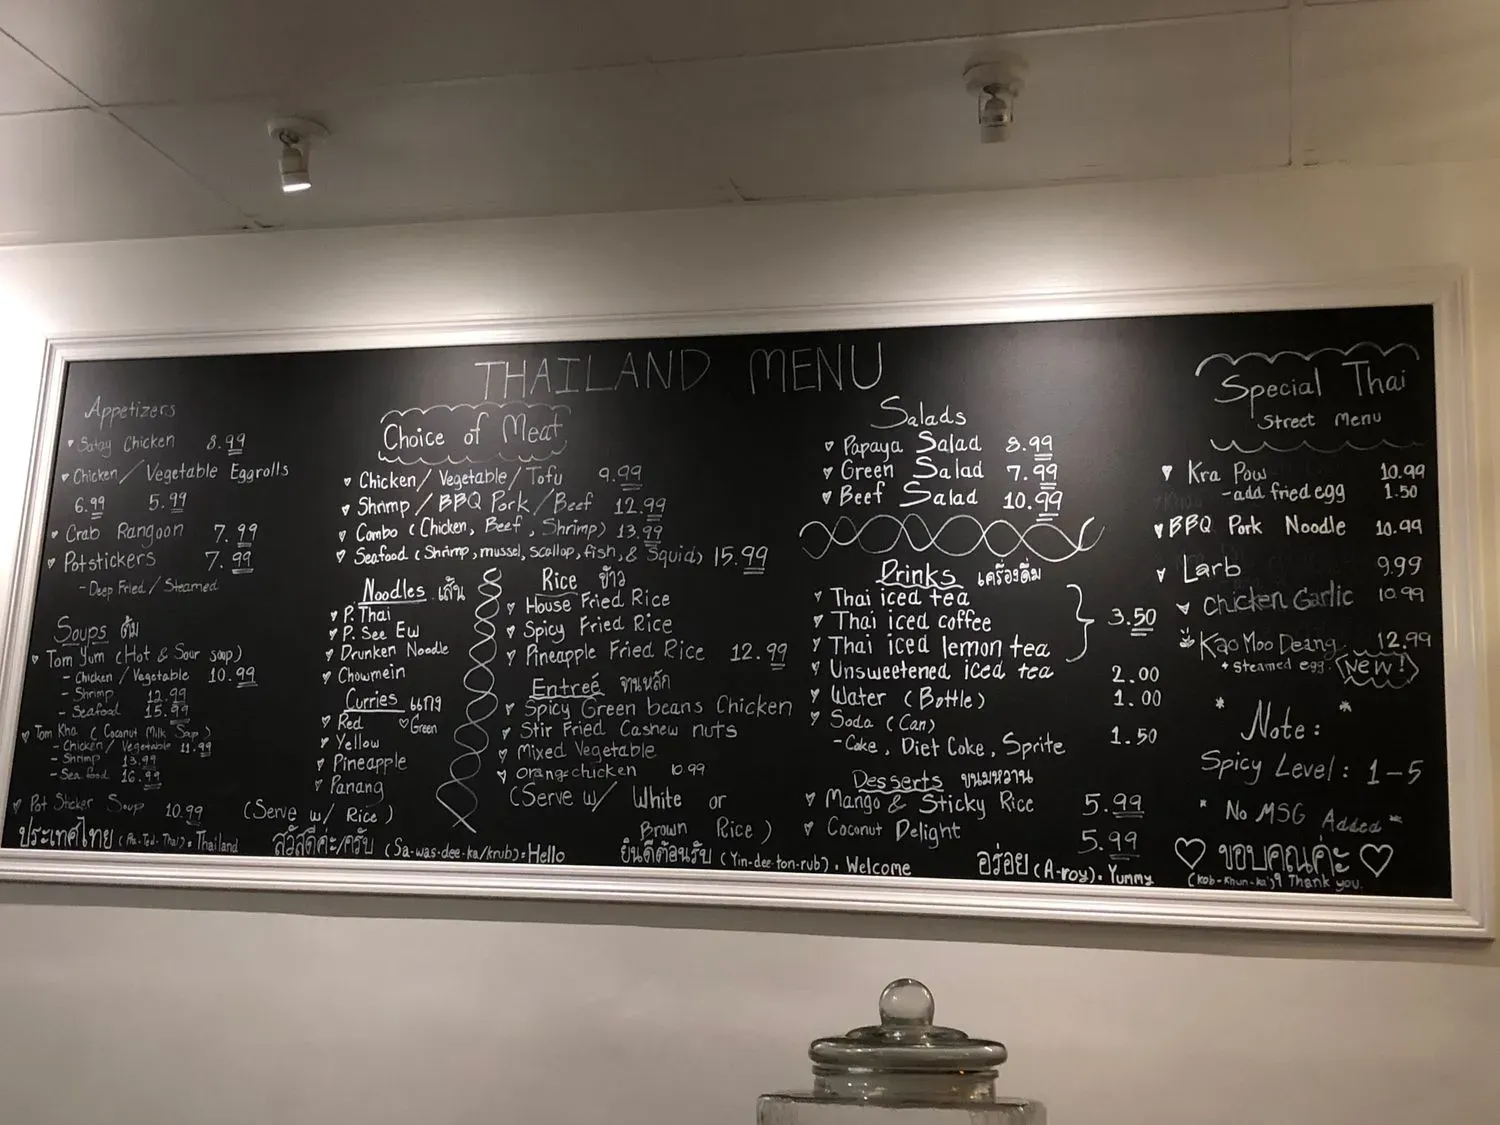 THAILAND MENU
Appetizers
Satay Chicken 8.99
Chicken / Vegetable Eggrolls
6.99 5.99
Crab Rangoon 7.99
Potstickers 7.99
- Deep Fried / Steamed
Soups ต้ม
Tom Yum (Hot & Sour soup)
- Chicken / Vegetable 10.99
- Shrimp 12.99
- Seafood 15.99
Tom Kha (Coconut Milk Soup)
- Chicken / Vegetable 11.99
- Shrimp 13.99
- Sea food 16.99
Pot Sticker Soup 10.99
Choice of Meat
Chicken / Vegetable / Tofu 9.99
Shrimp / BBQ Pork / Beef 12.99
Combo (Chicken, Beef, Shrimp) 13.99
Seafood (Shrimp, mussel, scallop, fish, & Squid) 15.99
Noodles เส้น
P. Thai
P. See Ew
Drunken Noodle
Chowmein
Curries แกง
Red ♡Green
Yellow
Pineapple
Panang
(Serve w/ Rice)
Rice ข้าว
House Fried Rice
Spicy Fried Rice
Pineapple Fried Rice 12.99
Entreé จานหลัก
Spicy Green beans Chicken
Stir Fried Cashew nuts
Mixed Vegetable
Orange chicken 10.99
(Serve w/ White or
Brown Rice)
Salads
Papaya Salad 8.99
Green Salad 7.99
Beef Salad 10.99
Drinks เครื่องดื่ม
Thai iced tea
Thai iced coffee 3.50
Thai iced lemon tea
Unsweetened iced tea 2.00
Water (Bottle) 1.00
Soda (Can) 1.50
- Coke, Diet Coke, Sprite
Desserts ขนมหวาน
Mango & Sticky Rice 5.99
Coconut Delight 5.99
Special Thai
Street Menu
Kra Pow 10.99
- add fried egg 1.50
BBQ Pork Noodle 10.99
Larb 9.99
Chicken Garlic 10.99
Kao Moo Deang 12.99
+ steamed egg. New!
* Note: *
Spicy Level: 1-5
* No MSG Added *
ประเทศไทย : Thailand
สวัสดีค่ะ/ครับ (Sa-was-dee-ka/krub) = Hello
ยินดีต้อนรับ (Yin-dee-ton-rub). Welcome
อร่อย (A-roy). Yummy
♡ ขอบคุณค่ะ ♡
(Kob-Khun-ka) Thank you.